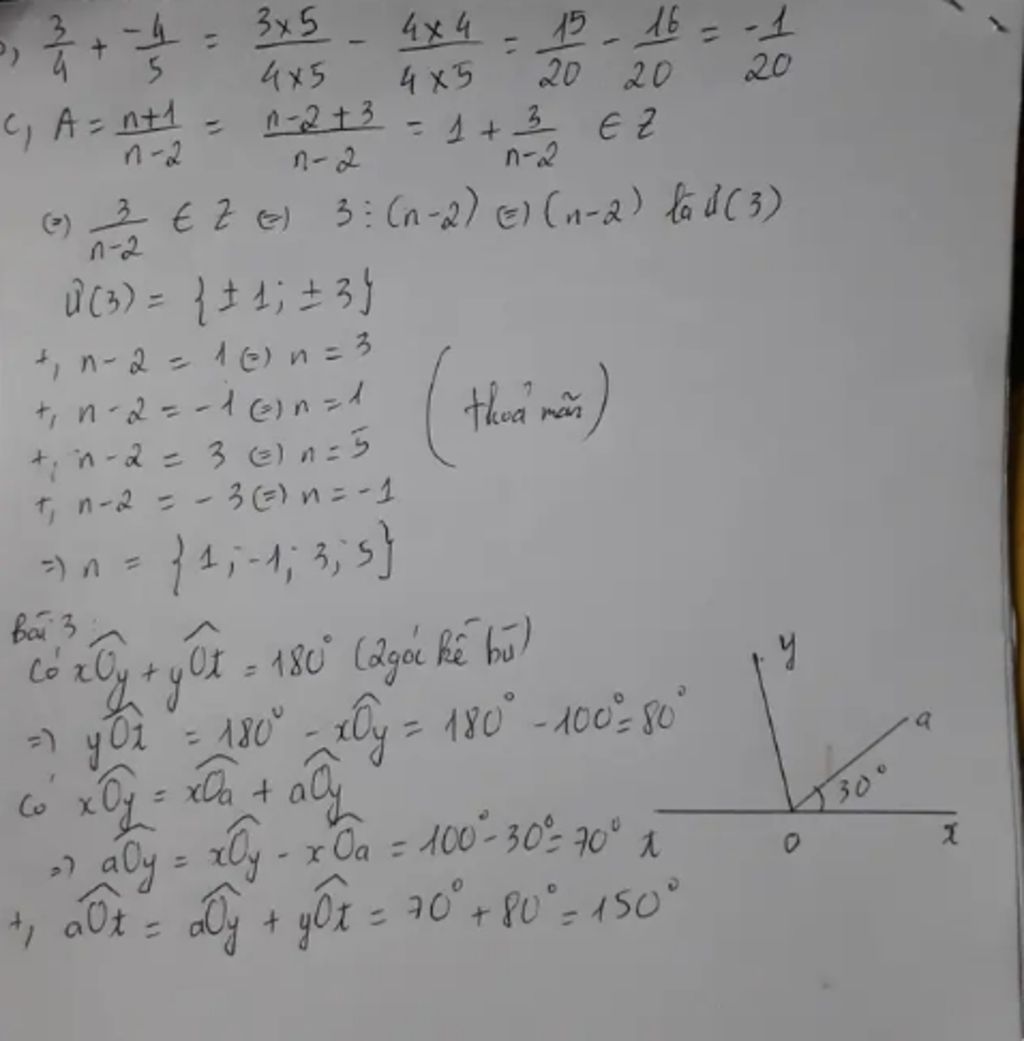 b, 3/4 + -4/5 = 3×5/4×5 - 4×4/4×5 = 15/20 - 16/20 = -1/20
c, A = n+1/n-2 = n-2+3/n-2 = 1 + 3/n-2 ∈ Z
(=) 3/n-2 ∈ Z (=) 3 ⋮ (n-2) (=) (n-2) là Ư(3)
Ư(3) = {±1; ±3}
+, n-2 = 1 (=) n = 3
+, n-2 = -1 (=) n = 1
(thoả mãn)
+, n-2 = 3 (=) n = 5
+, n-2 = -3 (=) n = -1
=) n = {1; -1; 3; 5}
Bài 3:
Có xÔy + yÔt = 180° (2 góc kề bù)
=) yÔt = 180° - xÔy = 180° - 100° = 80°
Có xÔy = xÔa + aÔy
=) aÔy = xÔy - xÔa = 100° - 30° = 70°
+, aÔt = aÔy + yÔt = 70° + 80° = 150°
y
a
30°
t
O
x